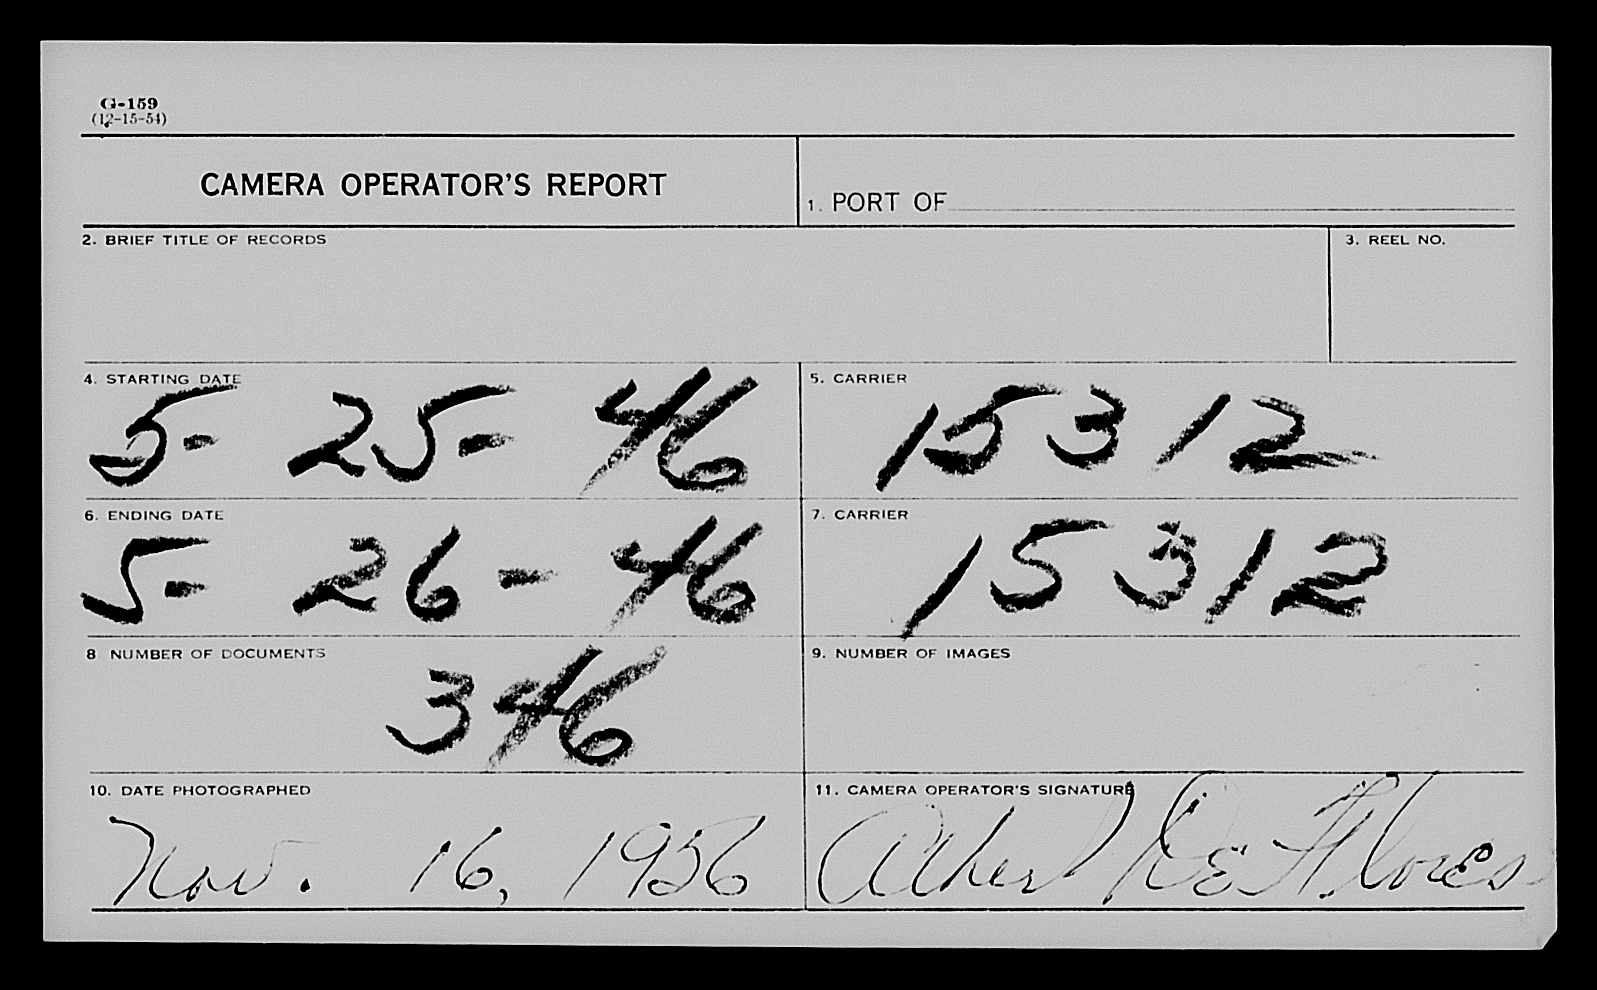 G-159
(12-15-54)
CAMERA OPERATOR'S REPORT
1. PORT OF
2. BRIEF TITLE OF RECORDS
3. REEL NO.
4. STARTING DATE
5- 25- 46
5. CARRIER
15312
6. ENDING DATE
5- 26- 46
7. CARRIER
15312
8 NUMBER OF DOCUMENTS
346
9. NUMBER OF IMAGES
10. DATE PHOTOGRAPHED
Nov. 16, 1956
11. CAMERA OPERATOR'S SIGNATURE